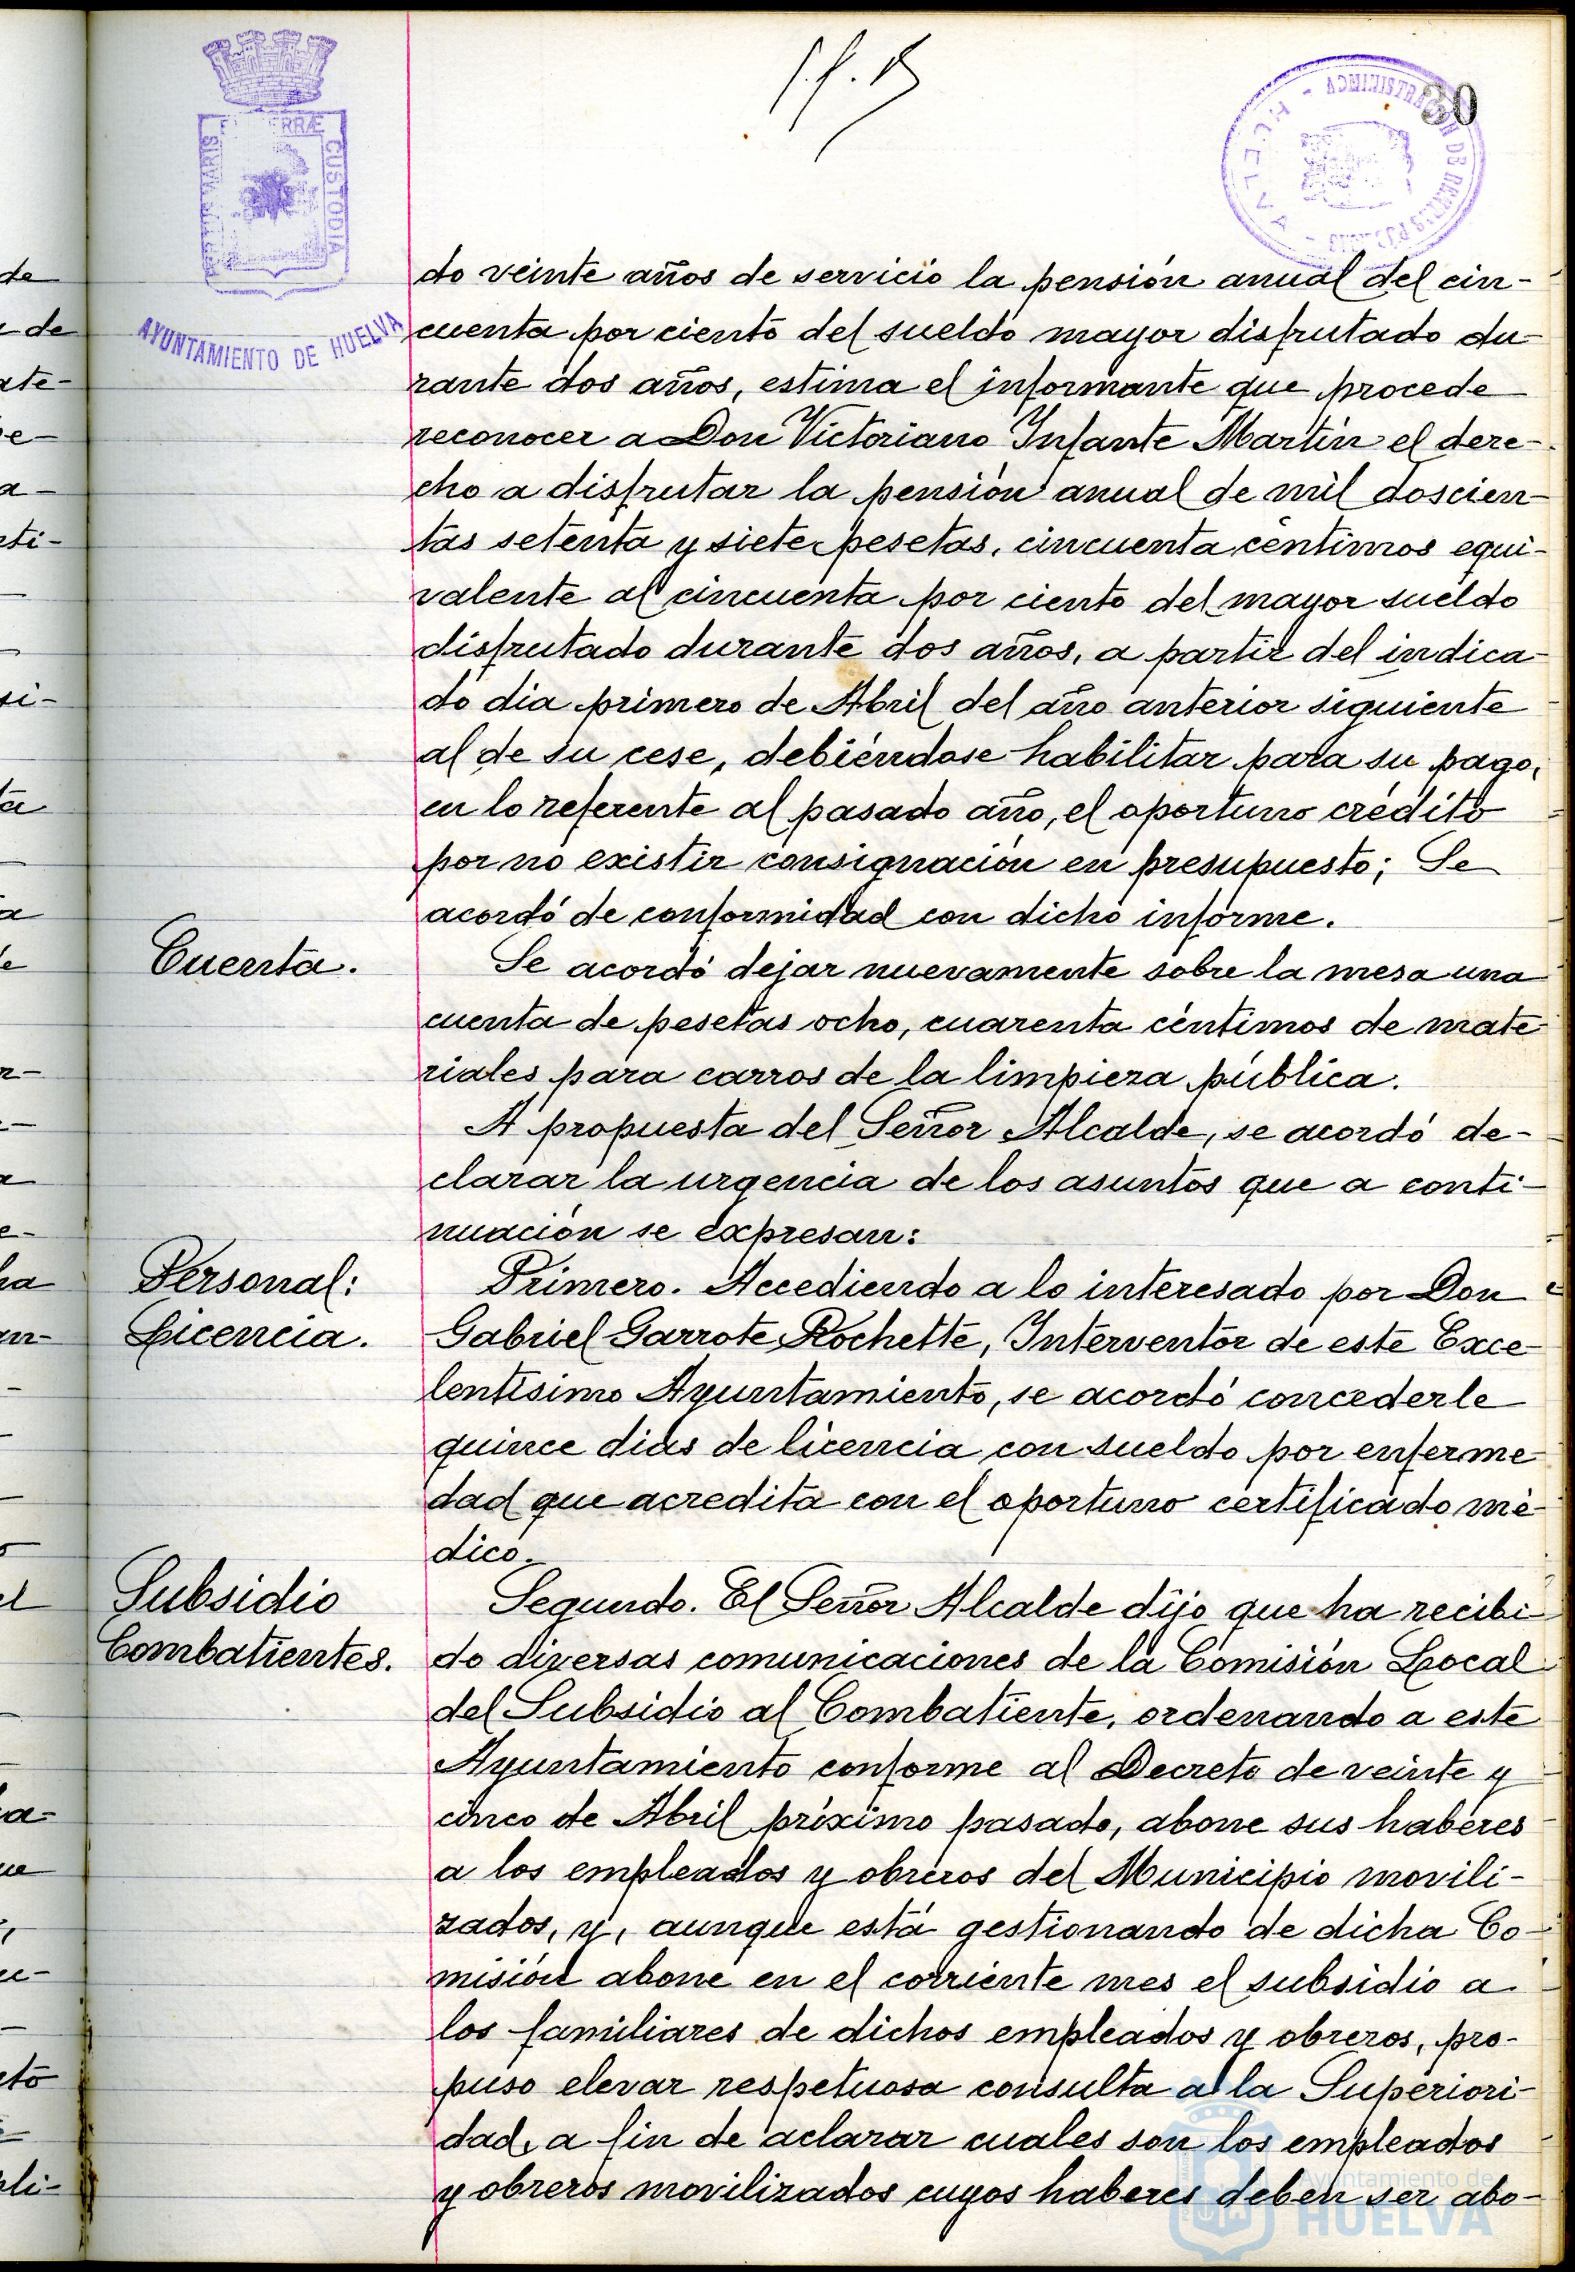 30
AYUNTAMIENTO DE HUELVA
do veinte años de servicio la pensión anual del cin-
cuenta por ciento del sueldo mayor disfrutado du-
rante dos años, estima el informante que procede
reconocer a Don Victoriano Infante Martín el dere-
cho a disfrutar la pensión anual de mil doscien-
tas setenta y siete pesetas, cincuenta céntimos equi-
valente al cincuenta por ciento del mayor sueldo
disfrutado durante dos años, a partir del indica-
do dia primero de Abril del año anterior siguiente
al de su cese, debiéndose habilitar para su pago,
en lo referente al pasado año, el oportuno crédito
por no existir consignación en presupuesto; Se
acordó de conformidad con dicho informe.
Cuenta.
Se acordó dejar nuevamente sobre la mesa una
cuenta de pesetas ocho, cuarenta céntimos de mate-
riales para carros de la limpieza pública.
A propuesta del Señor Alcalde, se acordó de-
clarar la urgencia de los asuntos que a conti-
nuación se expresan:
Personal:
Licencia.
Primero. Accediendo a lo interesado por Don
Gabriel Garrote Rochette, Interventor de este Exce-
lentísimo Ayuntamiento, se acordó concederle
quince dias de licencia con sueldo por enferme-
dad que acredita con el oportuno certificado mé-
dico.
Subsidio
Combatientes.
Segundo. El Señor Alcalde dijo que ha recibi-
do diversas comunicaciones de la Comisión Local
del Subsidio al Combatiente, ordenando a este
Ayuntamiento conforme al Decreto de veinte y
cinco de Abril próximo pasado, abone sus haberes
a los empleados y obreros del Municipio movili-
zados, y, aunque está gestionando de dicha Co-
misión abone en el corriente mes el subsidio a
los familiares de dichos empleados y obreros, pro-
puso elevar respetuosa consulta a la Superiori-
dad, a fin de aclarar cuales son los empleados
y obreros movilizados cuyos haberes deben ser abo-
Ayuntamiento de
HUELVA